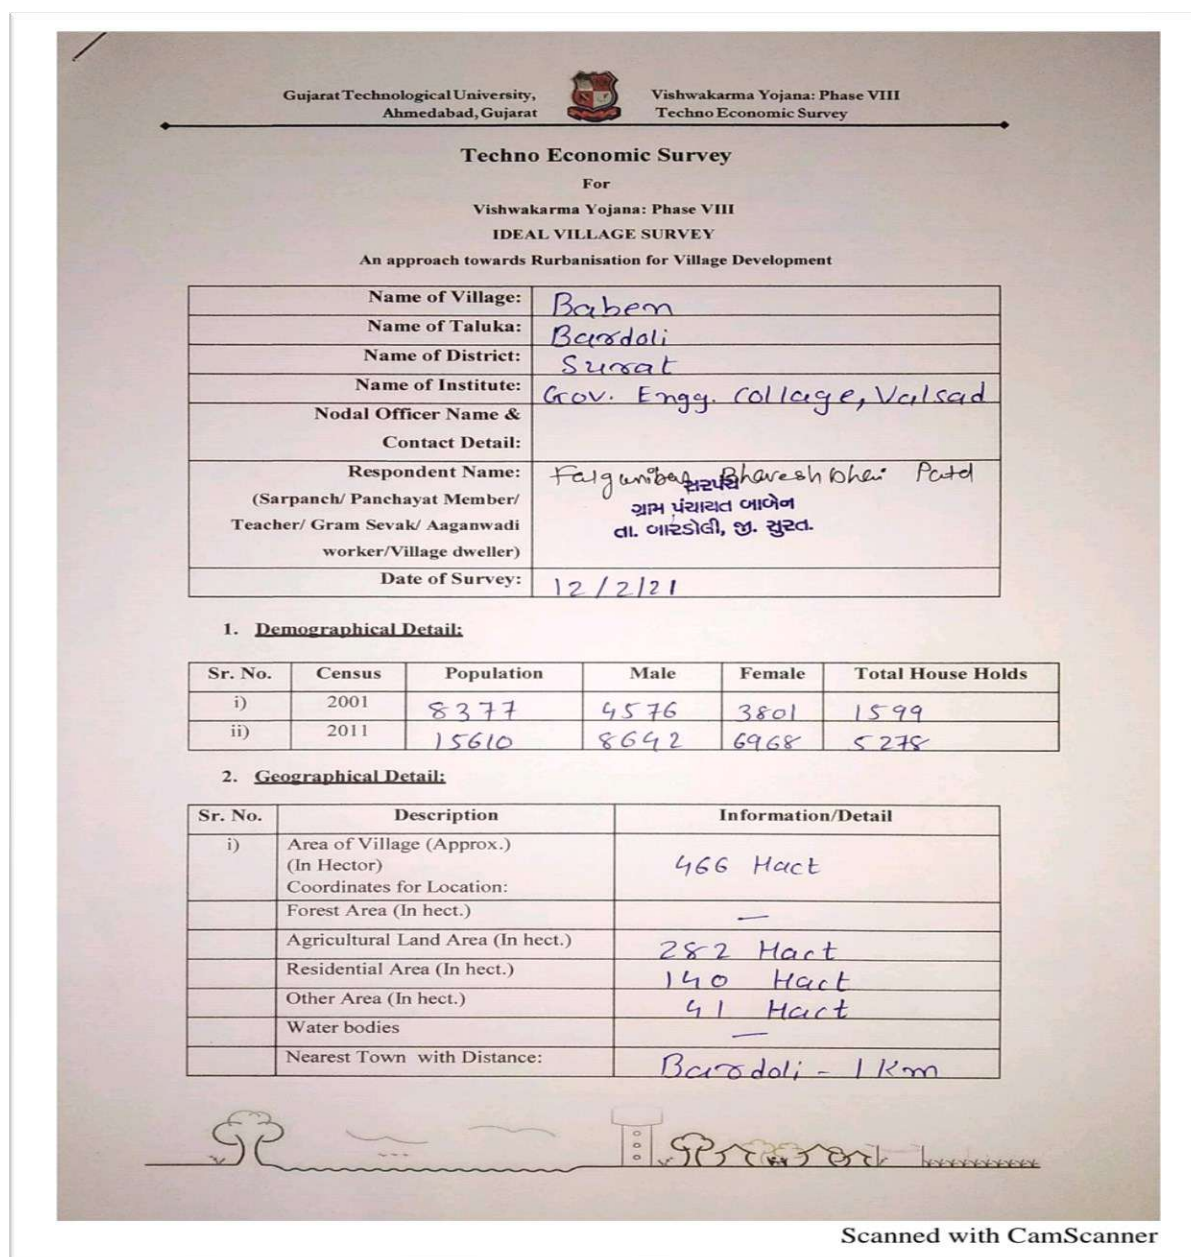 Gujarat Technological University,
Ahmedabad, Gujarat
Vishwakarma Yojana: Phase VIII
Techno Economic Survey
Techno Economic Survey
For
Vishwakarma Yojana: Phase VIII
IDEAL VILLAGE SURVEY
An approach towards Rurbanisation for Village Development
Name of Village: Baben
Name of Taluka: Bardoli
Name of District: Surat
Name of Institute: Gov. Engg. Collage, Valsad
Nodal Officer Name &
Contact Detail:
Respondent Name: Falguniben Bhaveshbhai Patel
(Sarpanch/ Panchayat Member/
Teacher/ Gram Sevak/ Aaganwadi
worker/Village dweller)
સરપંચ
ગ્રામ પંચાયત બાબેન
તા. બારડોલી, જી. સુરત.
Date of Survey: 12/2/21
1. Demographical Detail:
Sr. No. Census Population Male Female Total House Holds
i) 2001 8377 4576 3801 1599
ii) 2011 15610 8642 6968 5278
2. Geographical Detail:
Sr. No. Description Information/Detail
i) Area of Village (Approx.)
(In Hector) 466 Hact
Coordinates for Location:
Forest Area (In hect.) —
Agricultural Land Area (In hect.) 282 Hact
Residential Area (In hect.) 140 Hact
Other Area (In hect.) 41 Hact
Water bodies —
Nearest Town with Distance: Bardoli - 1 Km
Scanned with CamScanner